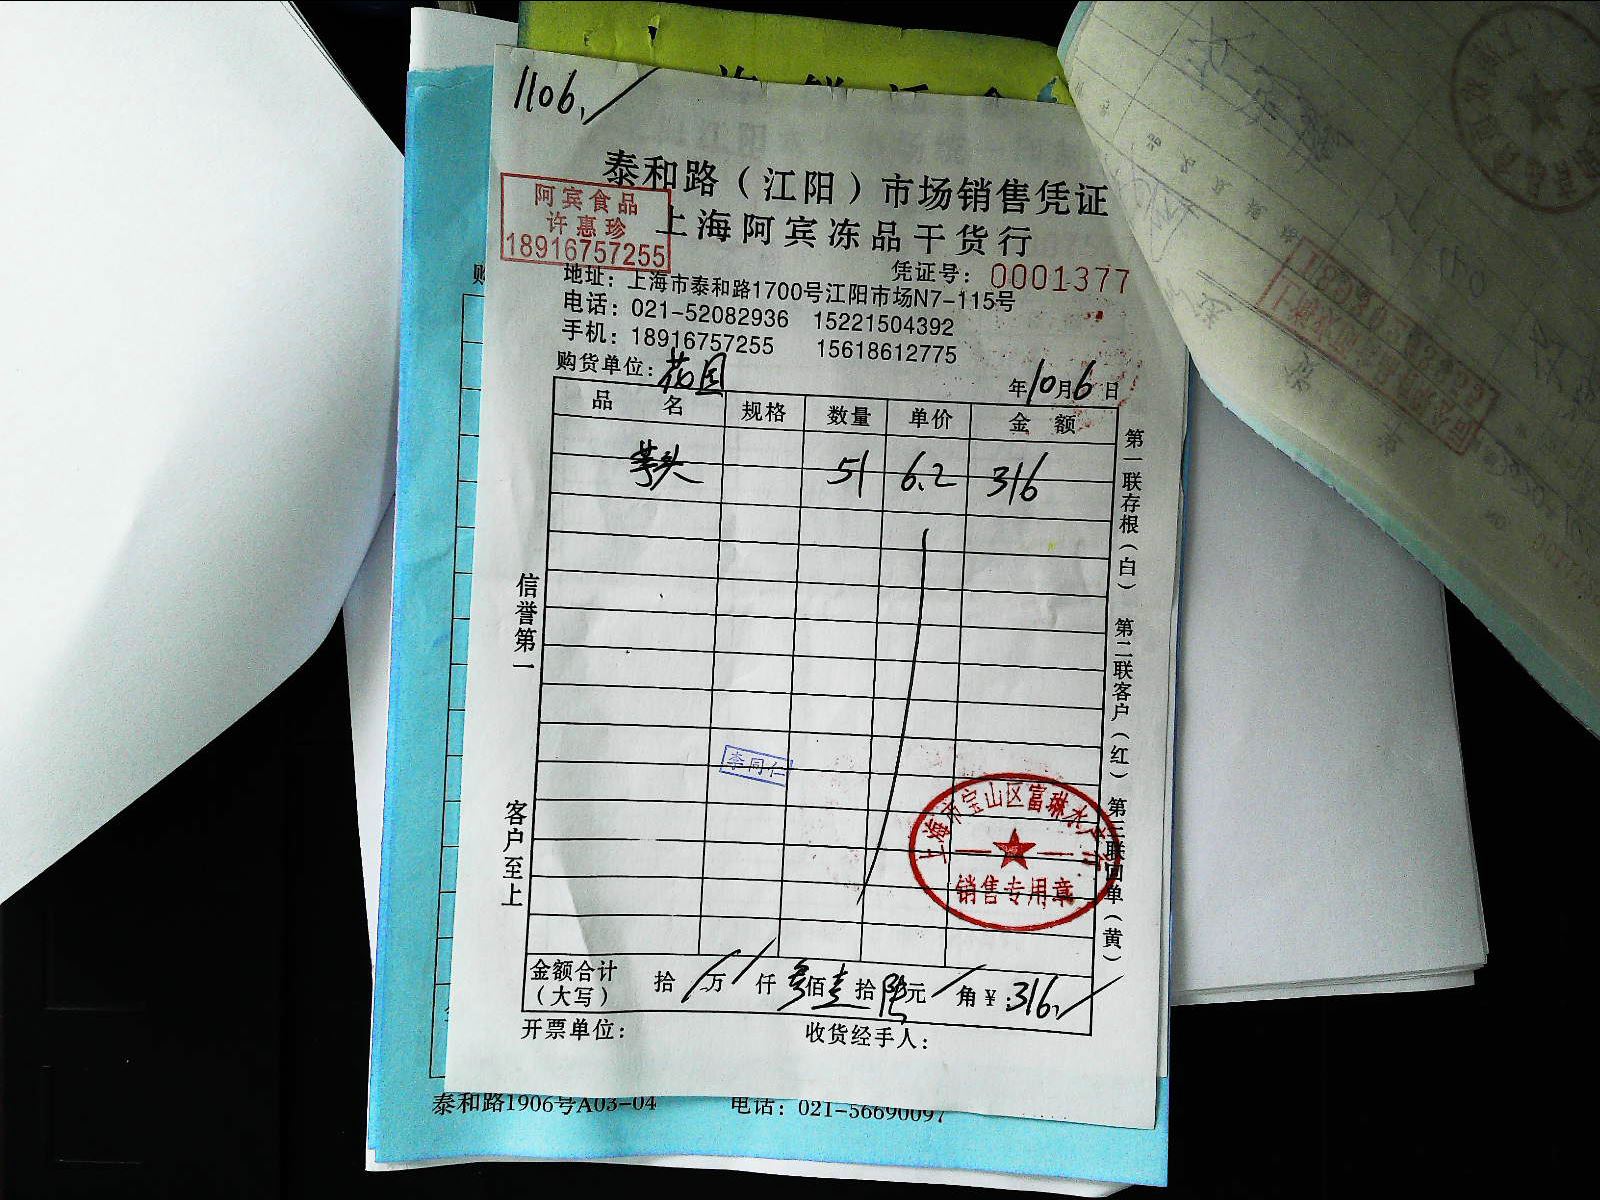 1106.
泰和路（江阳）市场销售凭证
阿宾食品
许惠珍
18916757255
上海阿宾冻品干货行
凭证号：0001377
地址：上海市泰和路1700号江阳市场N7-115号
电话：021-52082936 15221504392
手机：18916757255 15618612775
购货单位：花园
年10月6日
品名 规格 数量 单价 金额
芋头 51 6.2 316
信誉第一
客户至上
第一联存根（白） 第二联客户（红） 第三联回单（黄）
李同仁
上海市宝山区富琳水产行
销售专用章
金额合计（大写） 拾 万 仟 叁佰壹拾陆元 角 ¥：316.
开票单位： 收货经手人：
泰和路1906号A03-04 电话：021-56690097